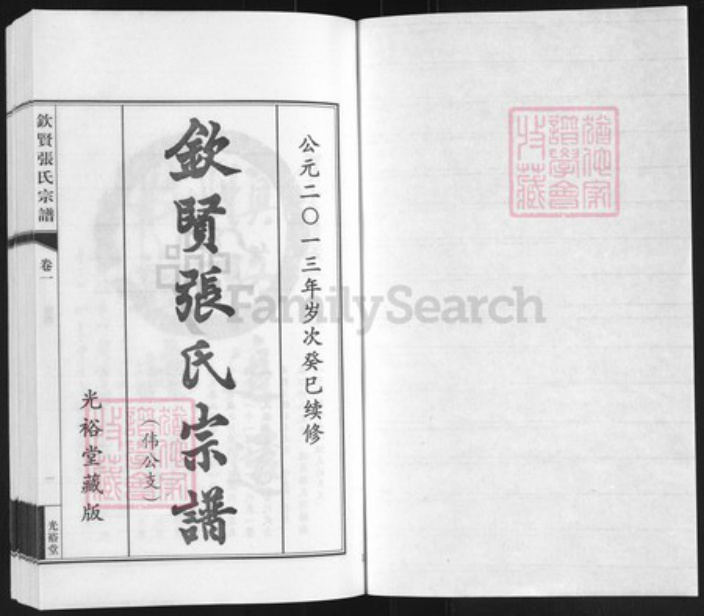 公元二〇一三年岁次癸巳续修
欽賢張氏宗譜
（伟公支）
光裕堂藏版
欽賢張氏宗譜
卷一
一
光裕堂
FamilySearch